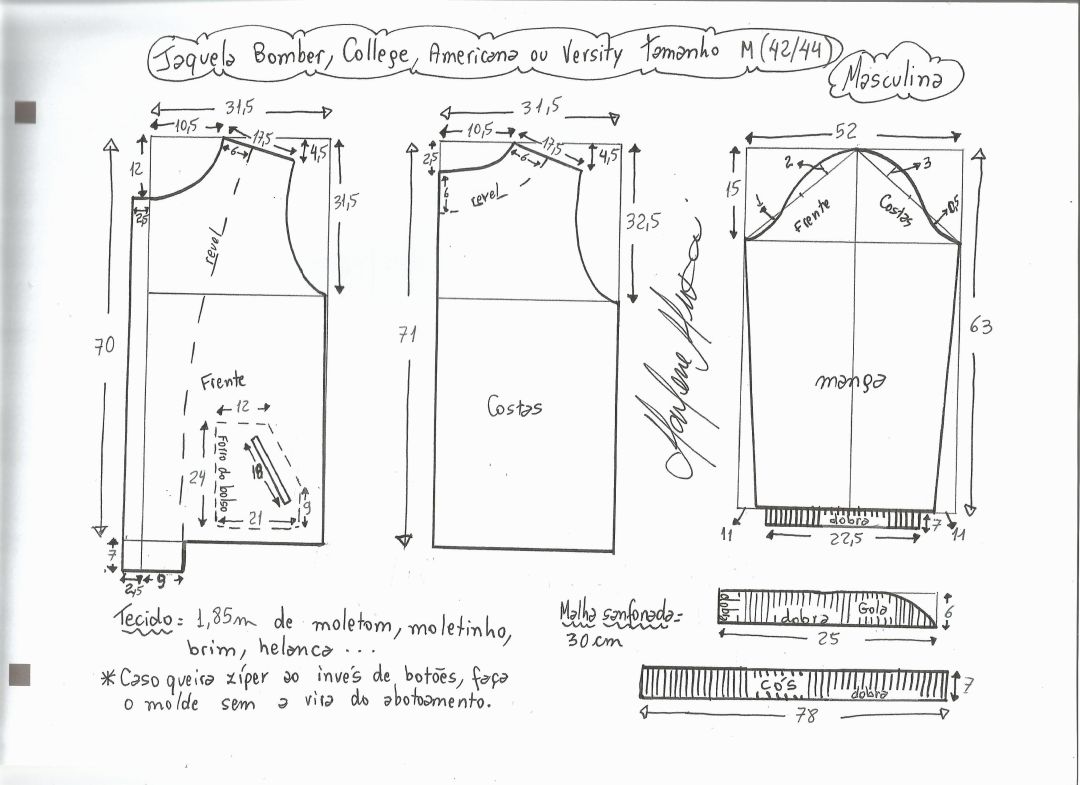 Jaqueta Bomber, College, Americana ou Versity Tamanho M (42/44)
Masculina
31,5
10,5
17,5
6
4,5
12
2,5
31,5
revel
70
Frente
12
24
Forro do bolso
18
9
21
7
2,5
9
31,5
10,5
17,5
6
4,5
2,5
6
revel
32,5
71
Costas
Marlene Mukai
52
15
2
3
1
0,5
Frente
Costas
63
manga
dobra
7
11
22,5
11
Tecido = 1,85m de moletom, moletinho,
brim, helanca ...
* Caso queira zíper ao invés de botões, faça
o molde sem a vira do abotoamento.
Malha sanfonada =
30 cm
dobra
dobra
Gola
6
25
cós
dobra
7
78